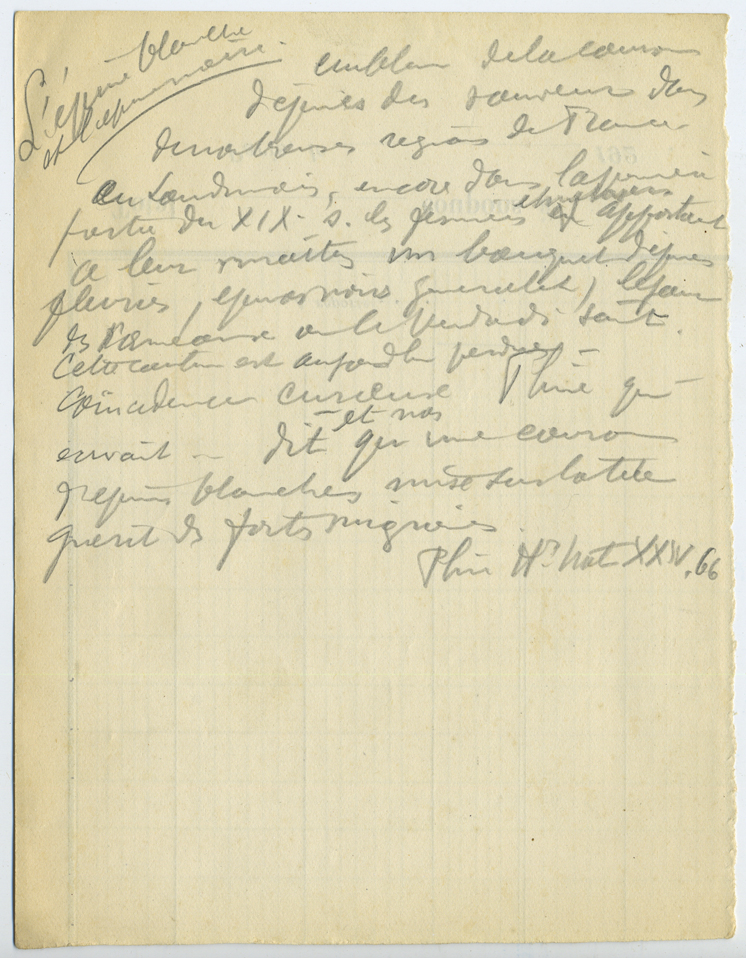 L'épine blanche
et l'épine noire.
emblème de la couronne
d'épines du sauveur dans
de nombreuses régions de France
en Loudunais, encore dans la première
partie du XIX- s. les fermiers et métayers apportaient
à leur maîtres un bouquet d'épines
fleuries, épines noires généralet, le jour
des rameaux ou le Vendredi Saint.
Cette coutume est aujourd'hui perdue -
Coïncidence curieuse Pline qui
écrivait - dit - et nos que une couronne
d'épines blanches mise sur la tête
guérit des fortes migraines.
Pline Hre Nat XXIV. 66